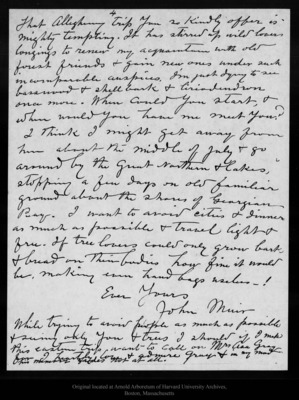 4
That Alleghany trip you so kindly offer is
mighty tempting. It has stirred up wild lover
longings to renew my acquaintance with old
forest friends & gain new ones under such
incomparable auspices. I'm just dying to see
basswood & shellbark & liriodendron
once more. When could you start, &
when would you have me meet you?
I think I might get away from
here about the middle of July & go
around by the Great Northern & Lakes,
stopping a few days on old familiar
ground about the shores of Georgian
Bay. I want to avoid cities & dinners
as much as possible & travel light &
free. If tree lovers could only grow bark
& bread on their bodies how fine it would
be, making even hand bags useless!
Ever Yours
John Muir
While trying to avoid people as much as possible
& seeing only you & trees I should, if I make
this eastern trip, want to call on Mrs Asa Gray
Original located at Arnold Arboretum of Harvard University Archives,
Boston, Massachusetts